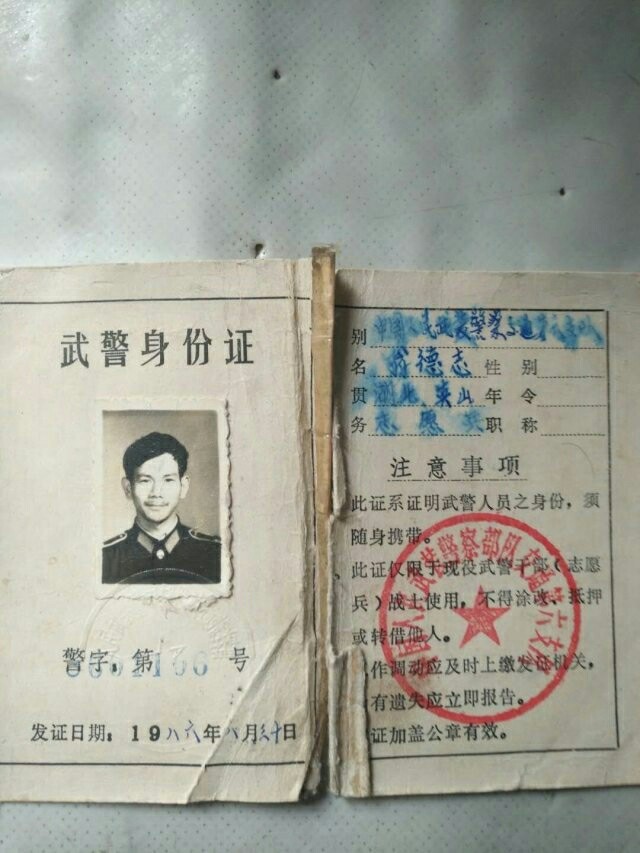 武警身份证
警字，第 号
发证日期：1986年8月30日
别
名 德志 性别
贯 湖北 英山 年令
务 志愿兵 职称
注意事项
此证系证明武警人员之身份，须
随身携带。
此证仅限于现役武警干部（志愿
兵）战士使用，不得涂改、抵押
或转借他人。
作调动应及时上缴发证机关，
有遗失应立即报告。
证加盖公章有效。
武装警察部队交通第六支